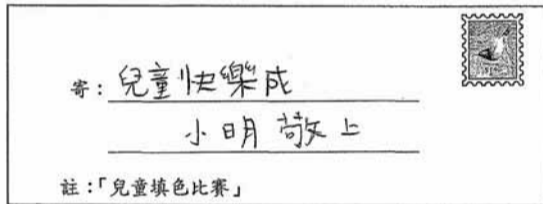 寄：兒童快樂成
小明 敬上
註：「兒童填色比賽」